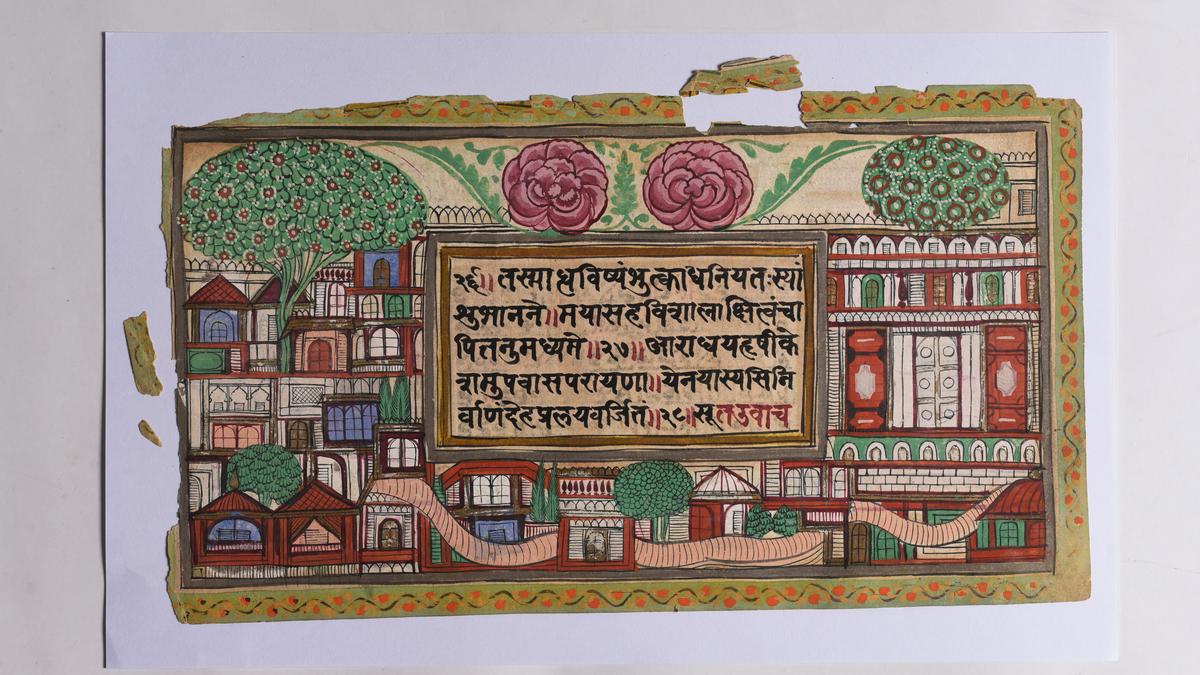 २६॥ तस्माद्भविष्यंश्रुत्काधनियतःस्यां
शुभानने॥मयासहविशालाक्षित्वंचा
पितनुमध्यमे॥२७॥आराधयहृषीके
शमुपवासपरायणा॥येनयास्यसिनि
र्वाणंदेहप्रलयवर्जितं॥२८॥सूतउवाच